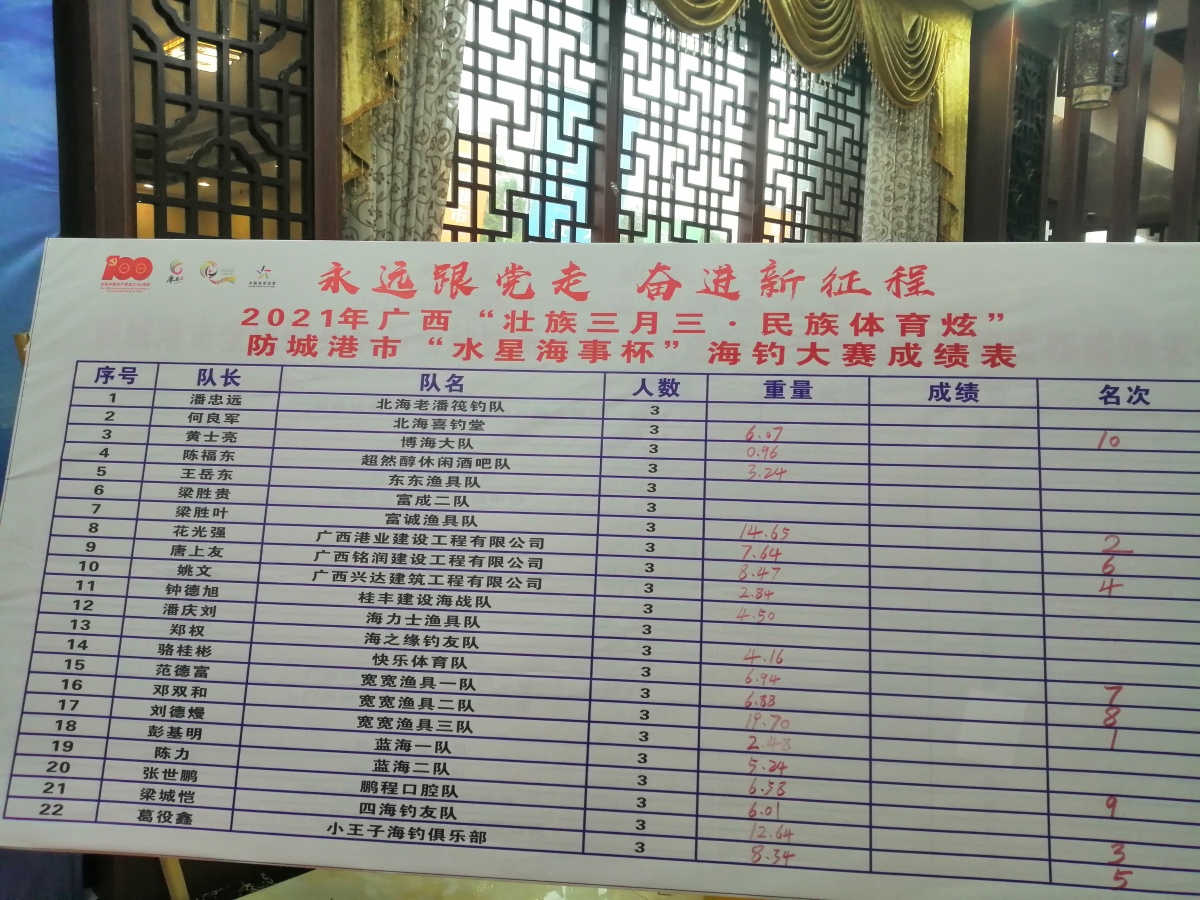 100
永远跟党走 奋进新征程
2021年广西“壮族三月三·民族体育炫”
防城港市“水星海事杯”海钓大赛成绩表
序号 队长 队名 人数 重量 成绩 名次
1 潘忠远 北海老潘筏钓队 3
2 何良军 北海喜钓堂 3 6.07 10
3 黄士亮 博海大队 3 0.96
4 陈福东 超然醇休闲酒吧队 3 3.24
5 王岳东 东东渔具队 3
6 梁胜贵 富成二队 3
7 梁胜叶 富诚渔具队 3 14.65 2
8 花光强 广西港业建设工程有限公司 3 7.64 6
9 唐上友 广西铭润建设工程有限公司 3 8.47 4
10 姚文 广西兴达建筑工程有限公司 3 2.84
11 钟德旭 桂丰建设海战队 3 4.50
12 潘庆刘 海力士渔具队 3
13 郑权 海之缘钓友队 3 4.16
14 骆桂彬 快乐体育队 3 6.94 7
15 范德富 宽宽渔具一队 3 6.83 8
16 邓双和 宽宽渔具二队 3 19.70 1
17 刘德熳 宽宽渔具三队 3
18 彭基明 蓝海一队 3 5.24
19 陈力 蓝海二队 3 6.53 9
20 张世鹏 鹏程口腔队 3 6.01
21 梁城恺 四海钓友队 3 12.64 3
22 葛役鑫 小王子海钓俱乐部 3 8.34 5